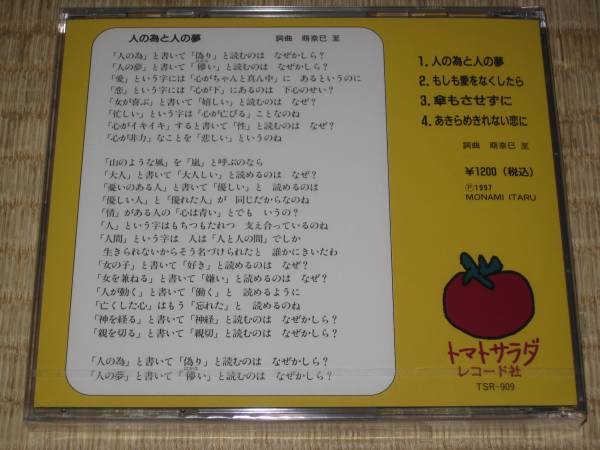 人の為と人の夢　詞曲　萌奈巳 至
「人の為」と書いて「偽り」と読むのは　なぜかしら？
「人の夢」と書いて「儚い」と読むのは　なぜかしら？
「愛」という字には「心がちゃんと真ん中」に　あるというのに
「恋」という字には「心が下」にあるのは　下心のせい？
「女が喜ぶ」と書いて「嬉しい」と読むのは　なぜ？
「忙しい」という字は「心が亡びる」ことなのね
「心がイキイキ」すると書いて「性」と読むのは　なぜ？
「心が非力」なことを「悲しい」というのね
「山のような風」を「嵐」と呼ぶのなら
「大人」と書いて「大人しい」と読めるのは　なぜ？
「憂いのある人」と書いて「優しい」と　読めるのは
「優しい人」と「優れた人」が　同じだからなのね
「情」がある人の「心は青い」とでも　いうの？
「人」という字はもちつもたれつ　支え合っているのね
「人間」という字は　人は「人と人の間」でしか
生きられないからそう名づけられたと　誰かにきいたわ
「女の子」と書いて「好き」と読めるのは　なぜ？
「女を兼ねる」と書いて「嫌い」と読めるのは　なぜ？
「人が動く」と書いて「働く」と　読めるように
「亡くした心」はもう「忘れた」と　読めるのね
「神を経る」と書いて「神経」と読むのは　なぜかしら？
「親を切る」と書いて「親切」と読むのは　なぜかしら？
「人の為」と書いて「偽り」と読むのは　なぜかしら？
「人の夢」と書いて「儚い」と読むのは　なぜかしら？
1. 人の為と人の夢
2. もしも愛をなくしたら
3. 傘もさせずに
4. あきらめきれない恋に
詞曲　萌奈巳 至
¥1200（税込）
Ⓟ1997
MONAMI ITARU
トマトサラダ
レコード社
TSR-909